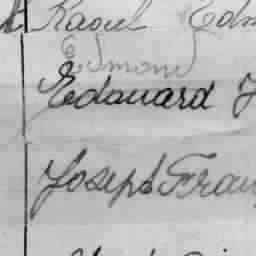 Raoul Edm
Edmond
Edouard J
Joseph Fran